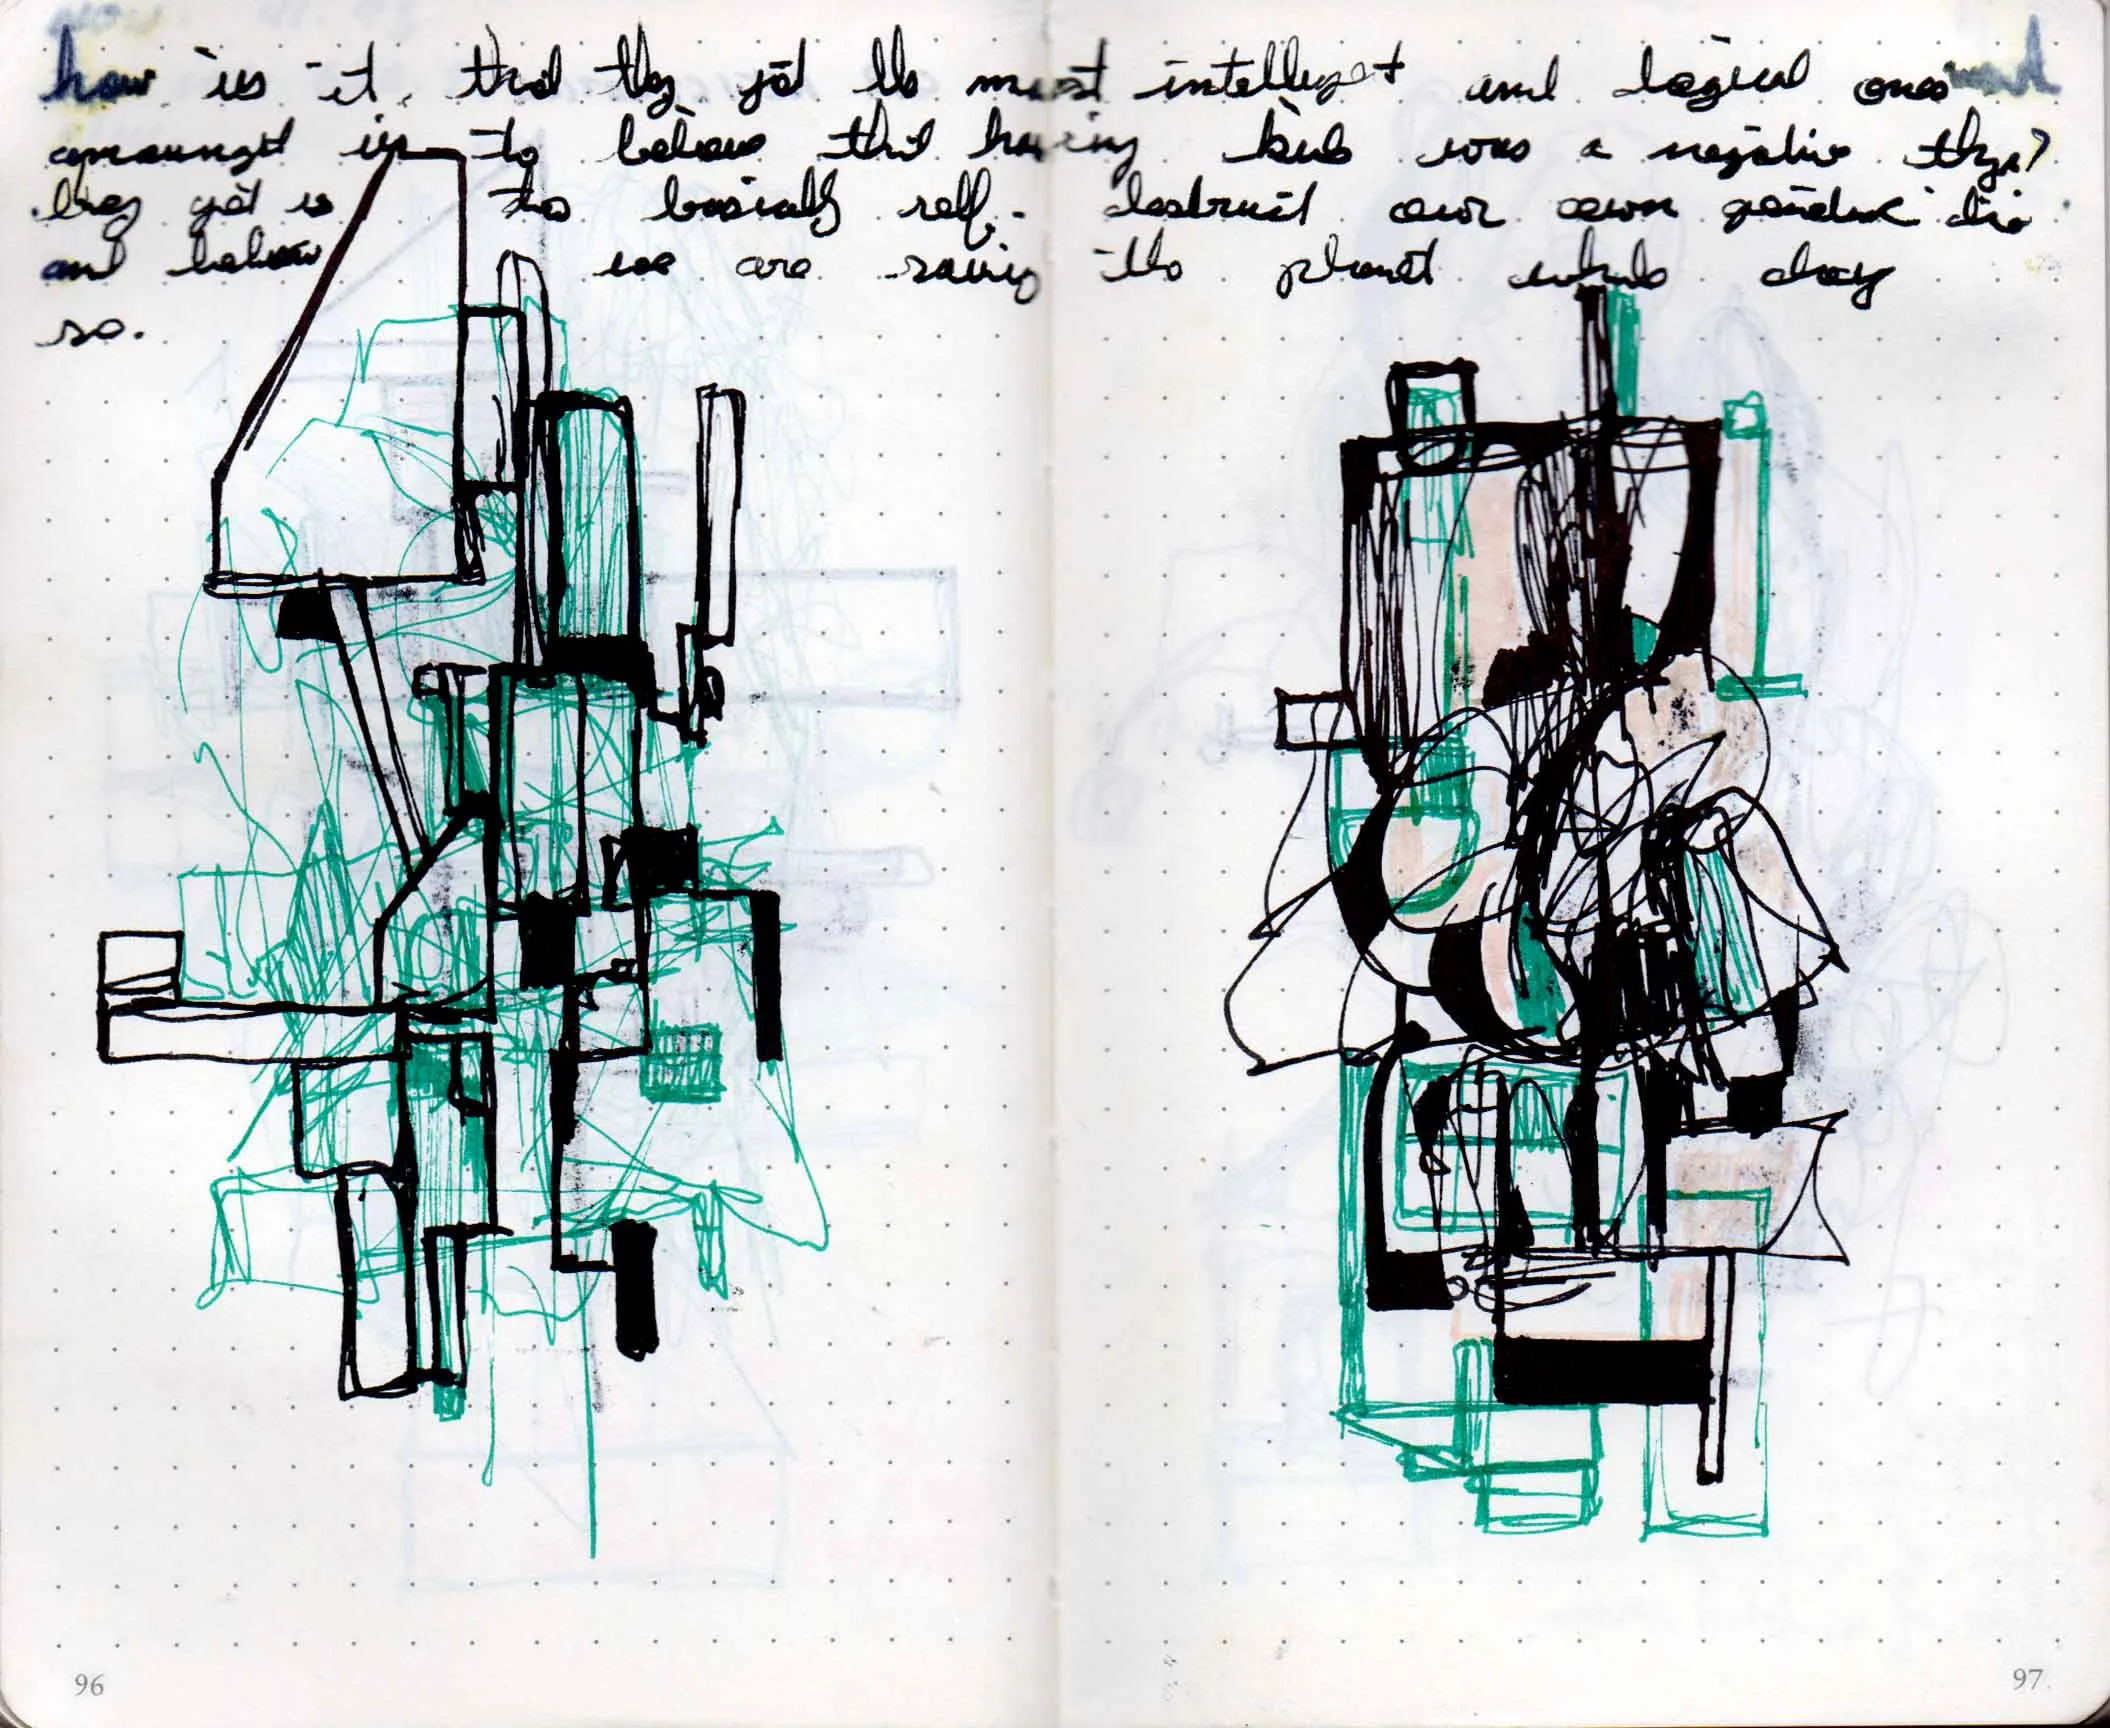 how is it, that they got the most intelligent and logical ones
amoungst us to believe that having kids was a negative thing?
they got us to basically self-destruct our own genetic
and believe we are saving the planet while doing
so.
96
97